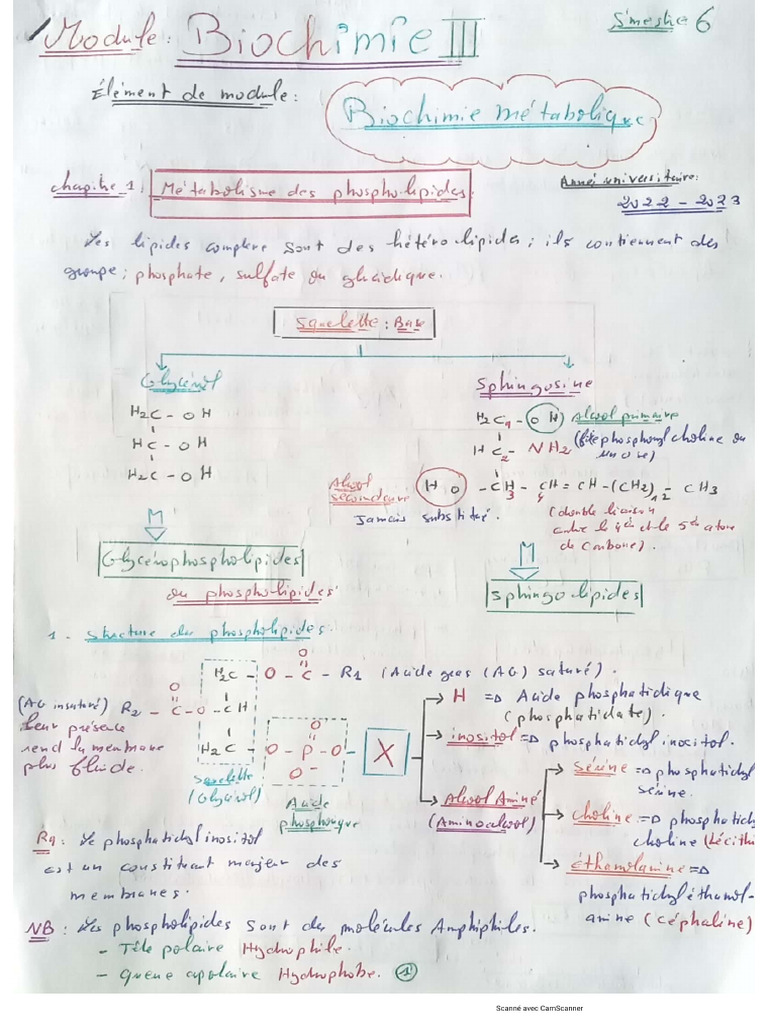 Module : Biochimie III
Semestre 6
Élément de module :
Biochimie métabolique
chapitre 1 : Métabolisme des phospholipides.
Anné universitaire :
2022 - 2023
Les lipides complexe sont des hétérolipides ; ils contiennent des
groupe ; phosphate, sulfate ou glucidique.
Squelette : Base
Glycérol
Sphingosine
H2C - OH
HC - OH
H2C - OH
H2C1 - OH Alcool primaire
phosphoryl choline ou
HC2 - NH2
un ose)
Alcool secondaire
HO - CH3 - CH4 = CH - (CH2)12 - CH3
Jamais substitué.
(double liaison
entre le 4em et le 5em atome
de Carbone).
Glycérophospholipides
ou phospholipides
Sphingolipides
1 - Structure du phospholipides.
H2C - O - C - R1 (Acide gras (AG) saturé).
O
(AG insaturé) R2 - C - O - CH
O
Leur présence
rend la membrane
plus fluide.
H2C - O - P - O - X
O
O
Squelette
(Glycérol)
Acide
phosphorique
H => Acide phosphatidique
(phosphatidate).
inositol => phosphatidyl inocitol.
Alcool Aminé
(Aminoalcool)
Sérine => phosphatidyl
sérine.
choline => phosphatidy
choline (Lécithi
éthanolamine =>
phosphatidyléthanol-
amine (céphaline)
Rq : Le phosphatidyl inositol
est un constituant majeur des
membranes.
NB : Les phospholipides sont des molécules Amphiphiles.
- Tête polaire Hydrophile.
- Queue apolaire Hydrophobe. 1
Scanné avec CamScanner